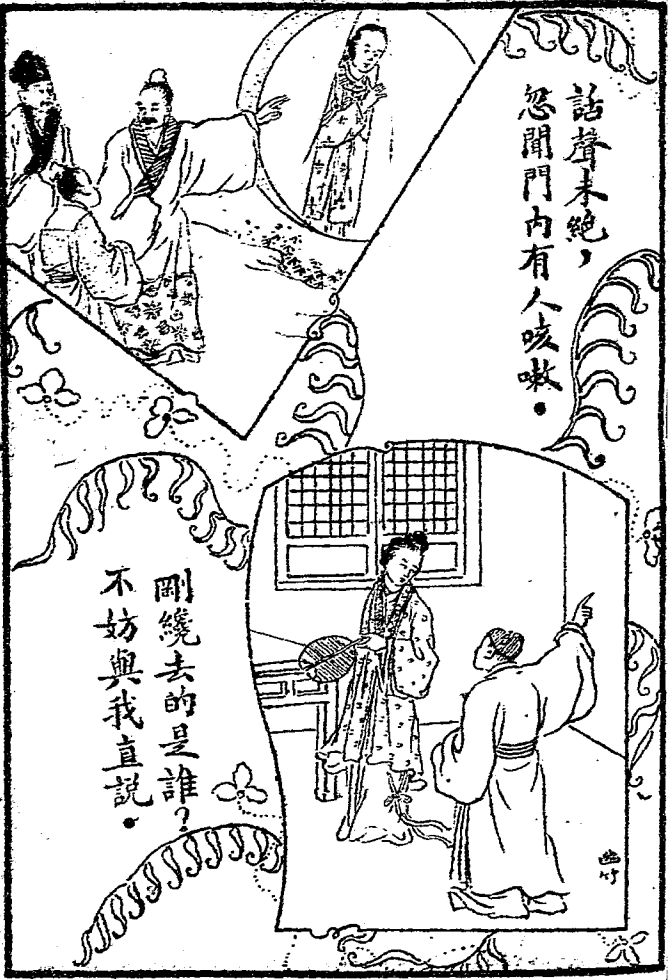 話聲未絕，
忽聞門內有人咳嗽．
剛纔去的是誰？
不妨與我直説．